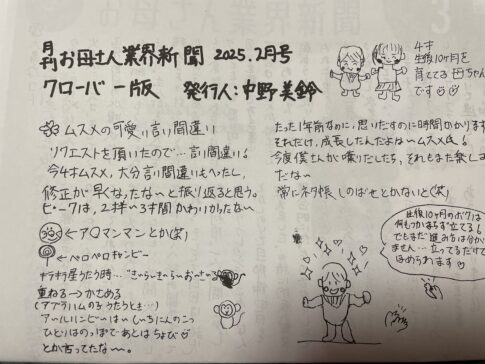 月刊 お母さん業界新聞 2025.2月号
クローバー版 発行人:中野美鈴
4才
生後10ヶ月を
育ててる母ちゃん
です
ムスメの可愛い言い間違い
リクエストを頂いたので…言い間違い
今4才ムスメ、大分言い間違いもへったし、
修正が早くなったな〜と振り返ると思う。
ピークは、2才半〜3才間かわりがない
←アロマンマンとか(笑)
←ペロペロキャンピー
キラキラ星うたう時…"きーらーきーらーおーさーる
重ねる→かさめる
(アブラハムの子うたうとき…)
アールハンビーはー しちにんのこっ
ひとりはのっぽであとはちょび
とか言ってたな〜。
たった1年前なのに、思いだすのに時間かかります
それだけ、成長したんだよね〜ムスメ氏
今度僕さんが喋りだしたら、それもまた楽しみ
だな〜
常にネタ帳しのばせとかないと(笑)
生後10ヶ月のボクは
何もつかまらず"立てる"
でもまだ進み方は分かり
ません…立ってるだけで
ほめられます